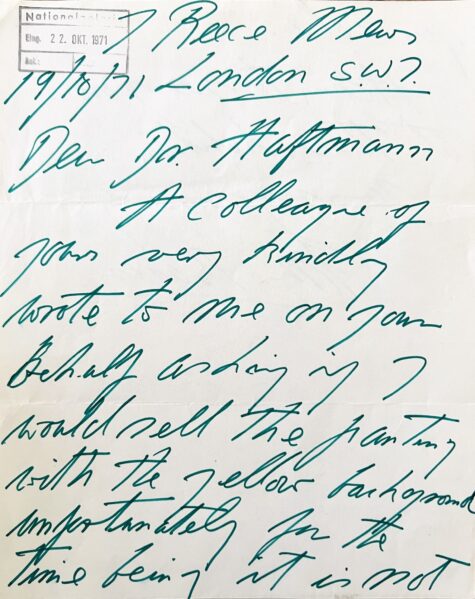 Nationalgalerie
Eing. 22. OKT. 1971
Anl.:
7 Reece Mews
19/10/71 London S.W.7.
Dear Dr. Haftmann
A colleague of
yours very kindly
wrote to me on your
Behalf asking if I
would sell the painting
with the yellow background
unfortunately for the
time being it is not